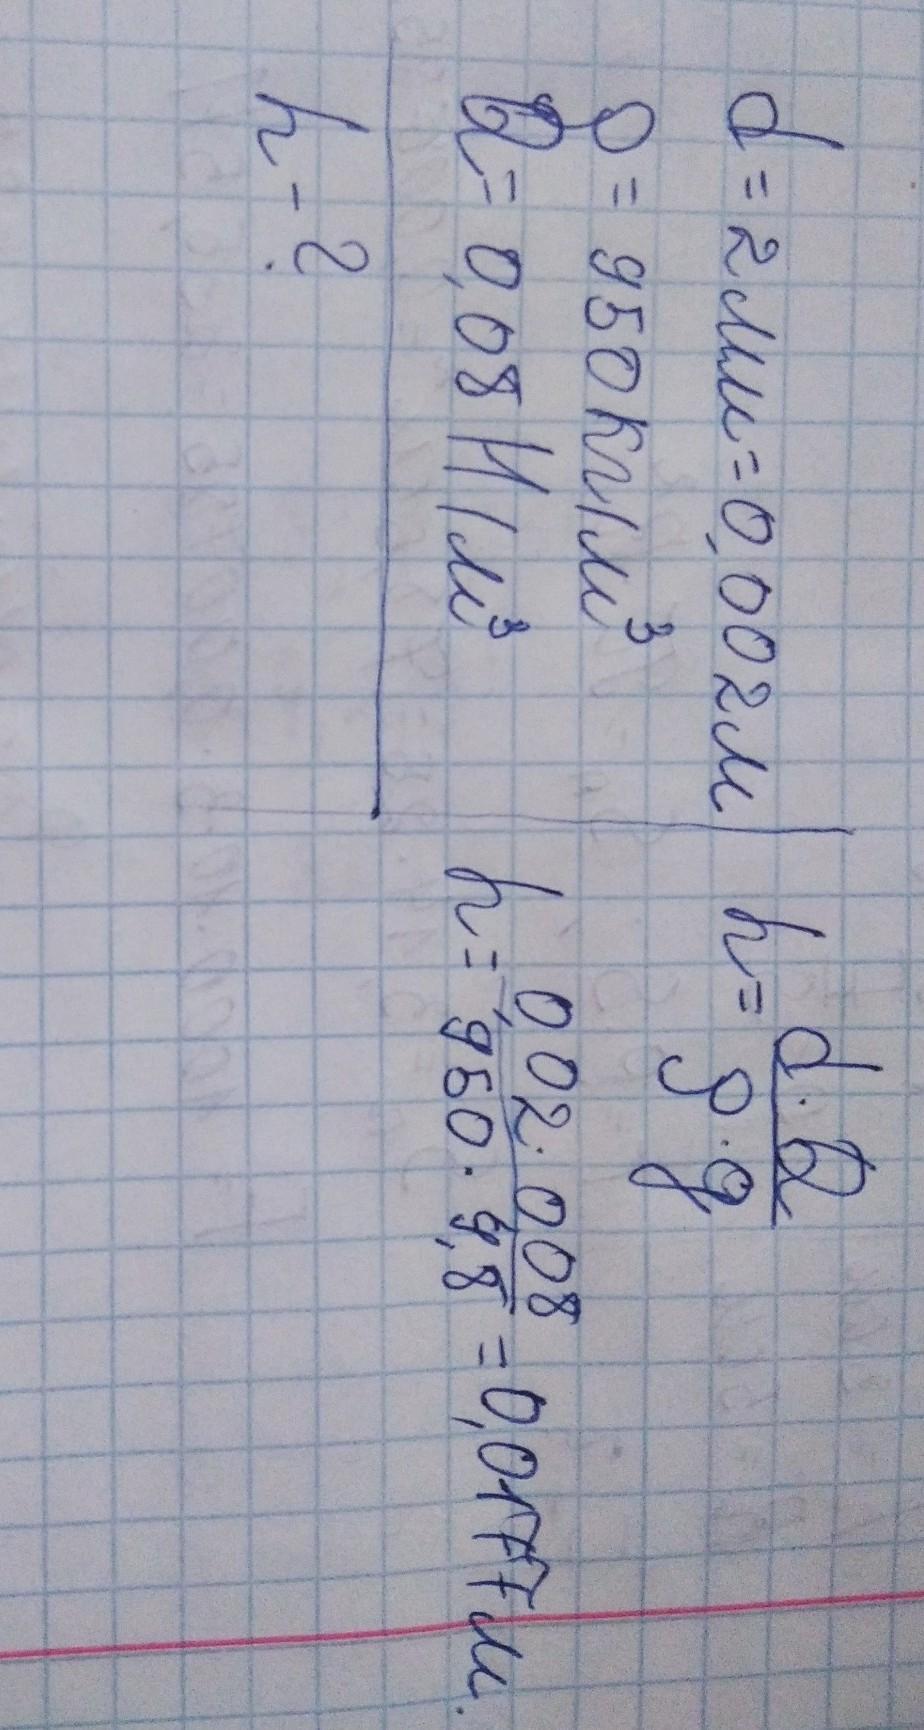 d = 2мм = 0,002м
ρ = 950 кг/м³
α = 0,08 Н/м³
h - ?
h = d · α / ρ · g
h = 0,02 · 0,08 / 950 · 9,8 = 0,0177м.